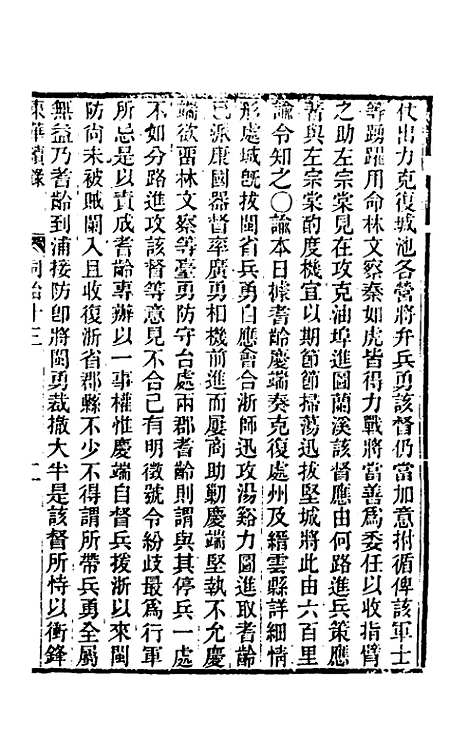 代出力克復城池各營將弁兵勇該督仍當加意拊循俾該軍士
等踴躍用命林文察秦如虎皆得力戰將當善爲委任以收指臂
之助左宗棠見在攻克油埠進圖蘭溪該督應由何路進兵策應
著與左宗棠酌度機宜以期節節掃蕩迅拔堅城將此由六百里
諭令知之〇諭本日據耆齡慶端奏克復處州及縉雲縣詳細情
形處城旣拔閩省兵勇自應會合浙師迅攻湯谿力圖進取耆齡
已派康國器督率廣勇相機前進而屢商助勦慶端堅執不允慶
端欲畱林文察等臺勇防守台處兩郡耆齡則謂與其停兵一處
不如分路進攻該督等意見不合已有明徵號令紛歧最爲行軍
所忌是以責成耆齡專辦以一事權惟慶端自督兵援浙以來閩
防尚未被賊闌入且收復浙省郡縣不少不得謂所帶兵勇全屬
無益乃耆齡到浦接防卽將閩勇裁撤大半是該督所恃以衝鋒
東華續錄
同治十三